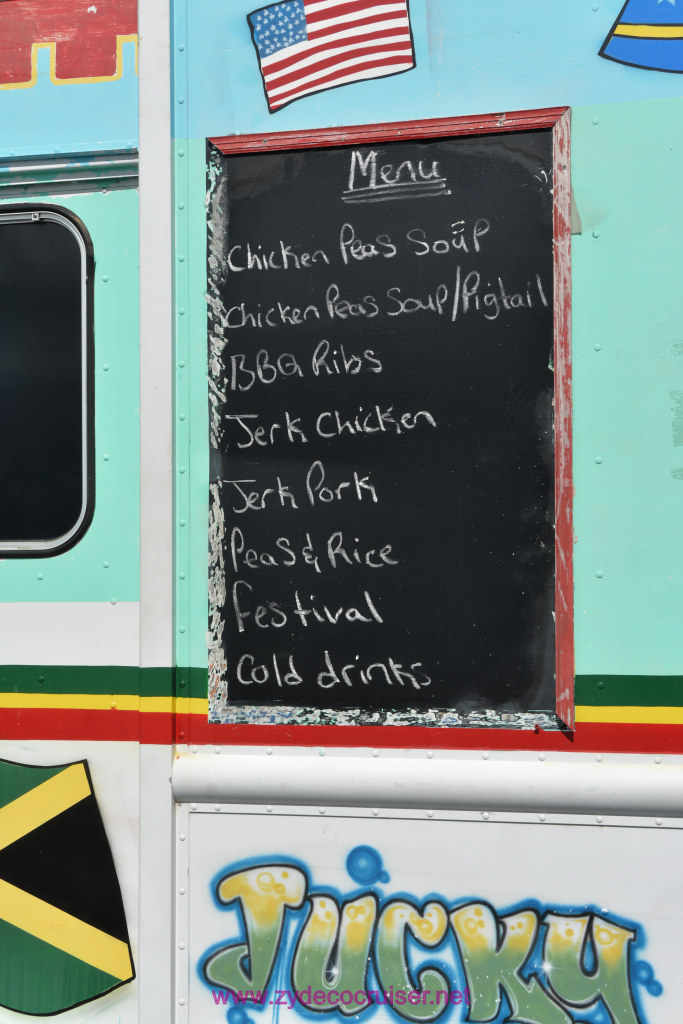 Menu
Chicken Peas Soup
Chicken Peas Soup/Pigtail
BBQ Ribs
Jerk Chicken
Jerk Pork
Peas & Rice
festival
Cold drinks
JUCKY
www.zydecocruiser.net